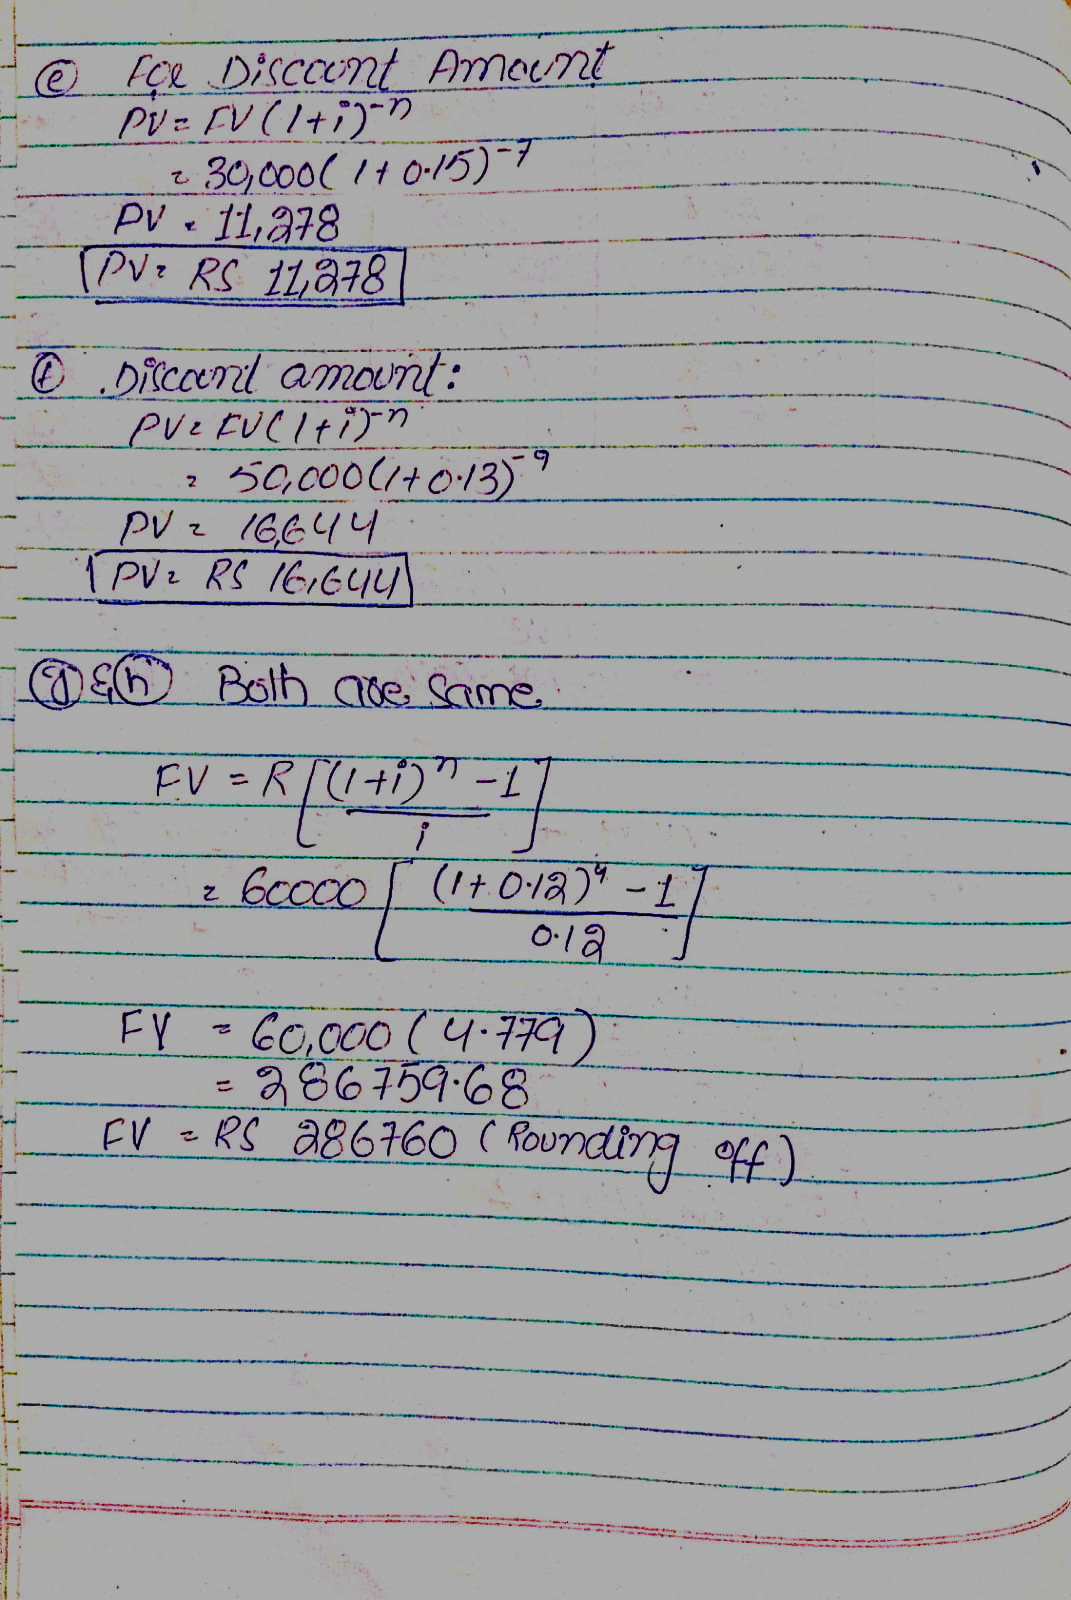 (e) For Discount Amount
PV = FV(1+i)^-n
= 30,000(1+0.15)^-7
PV = 11,278
PV = RS 11,278
(f) Discount amount:
PV = FV(1+i)^-n
= 50,000(1+0.13)^-9
PV = 16,644
PV = RS 16,644
(g) & (h) Both are same.
FV = R[((1+i)^n - 1)/i]
= 60000[((1+0.12)^4 - 1)/0.12]
FV = 60,000(4.779)
= 286759.68
FV = RS 286760 (Rounding off)